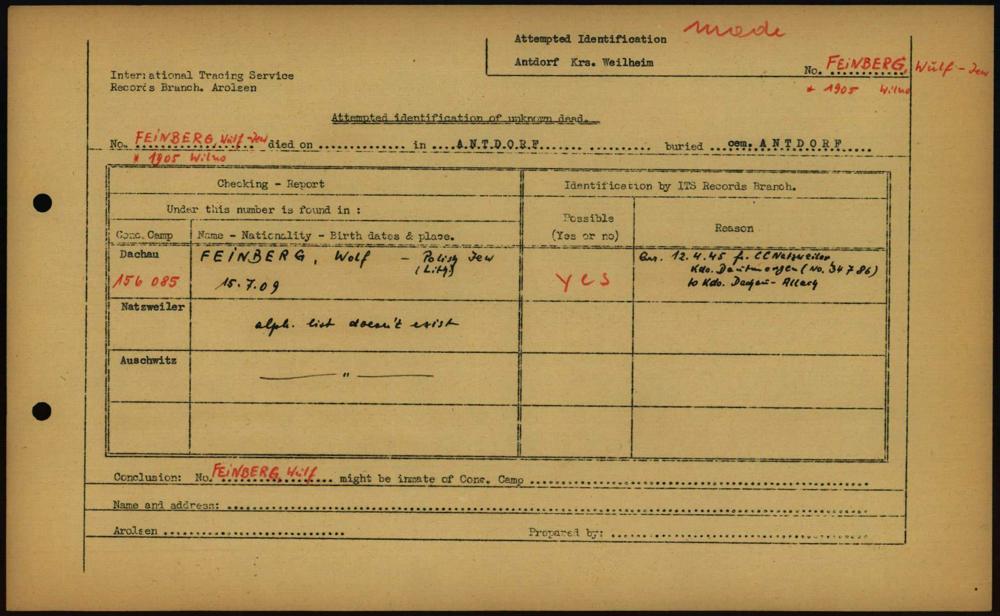 made
Attempted Identification
Antdorf Krs. Weilheim
No. FEINBERG, Wulf - Jew
* 1905 Wilno
International Tracing Service
Records Branch. Arolsen
Attempted identification of unknown dead.
No. FEINBERG, Wulf - Jew died on ............ in ...ANTDORF............... buried ..cem. ANTDORF.....
* 1905 Wilno
Checking - Report
Identification by ITS Records Branch.
Under this number is found in :
Possible
(Yes or no)
Reason
Conc. Camp
Name - Nationality - Birth dates & place.
Dachau
156 085
FEINBERG, Wolf - Polish Jew
(Lith)
15.7.09
yes
arr. 12.4.45 fr. CC Natzweiler
Kdo. Dautmergen (No. 34786)
to Kdo. Dachau - Allach
Natzweiler
alph. list doesn't exist
Auschwitz
— " —
Conclusion: No. FEINBERG, Wulf... might be inmate of Conc. Camp ..........
Name and address: ..........
Arolsen ..........
Prepared by: ..........